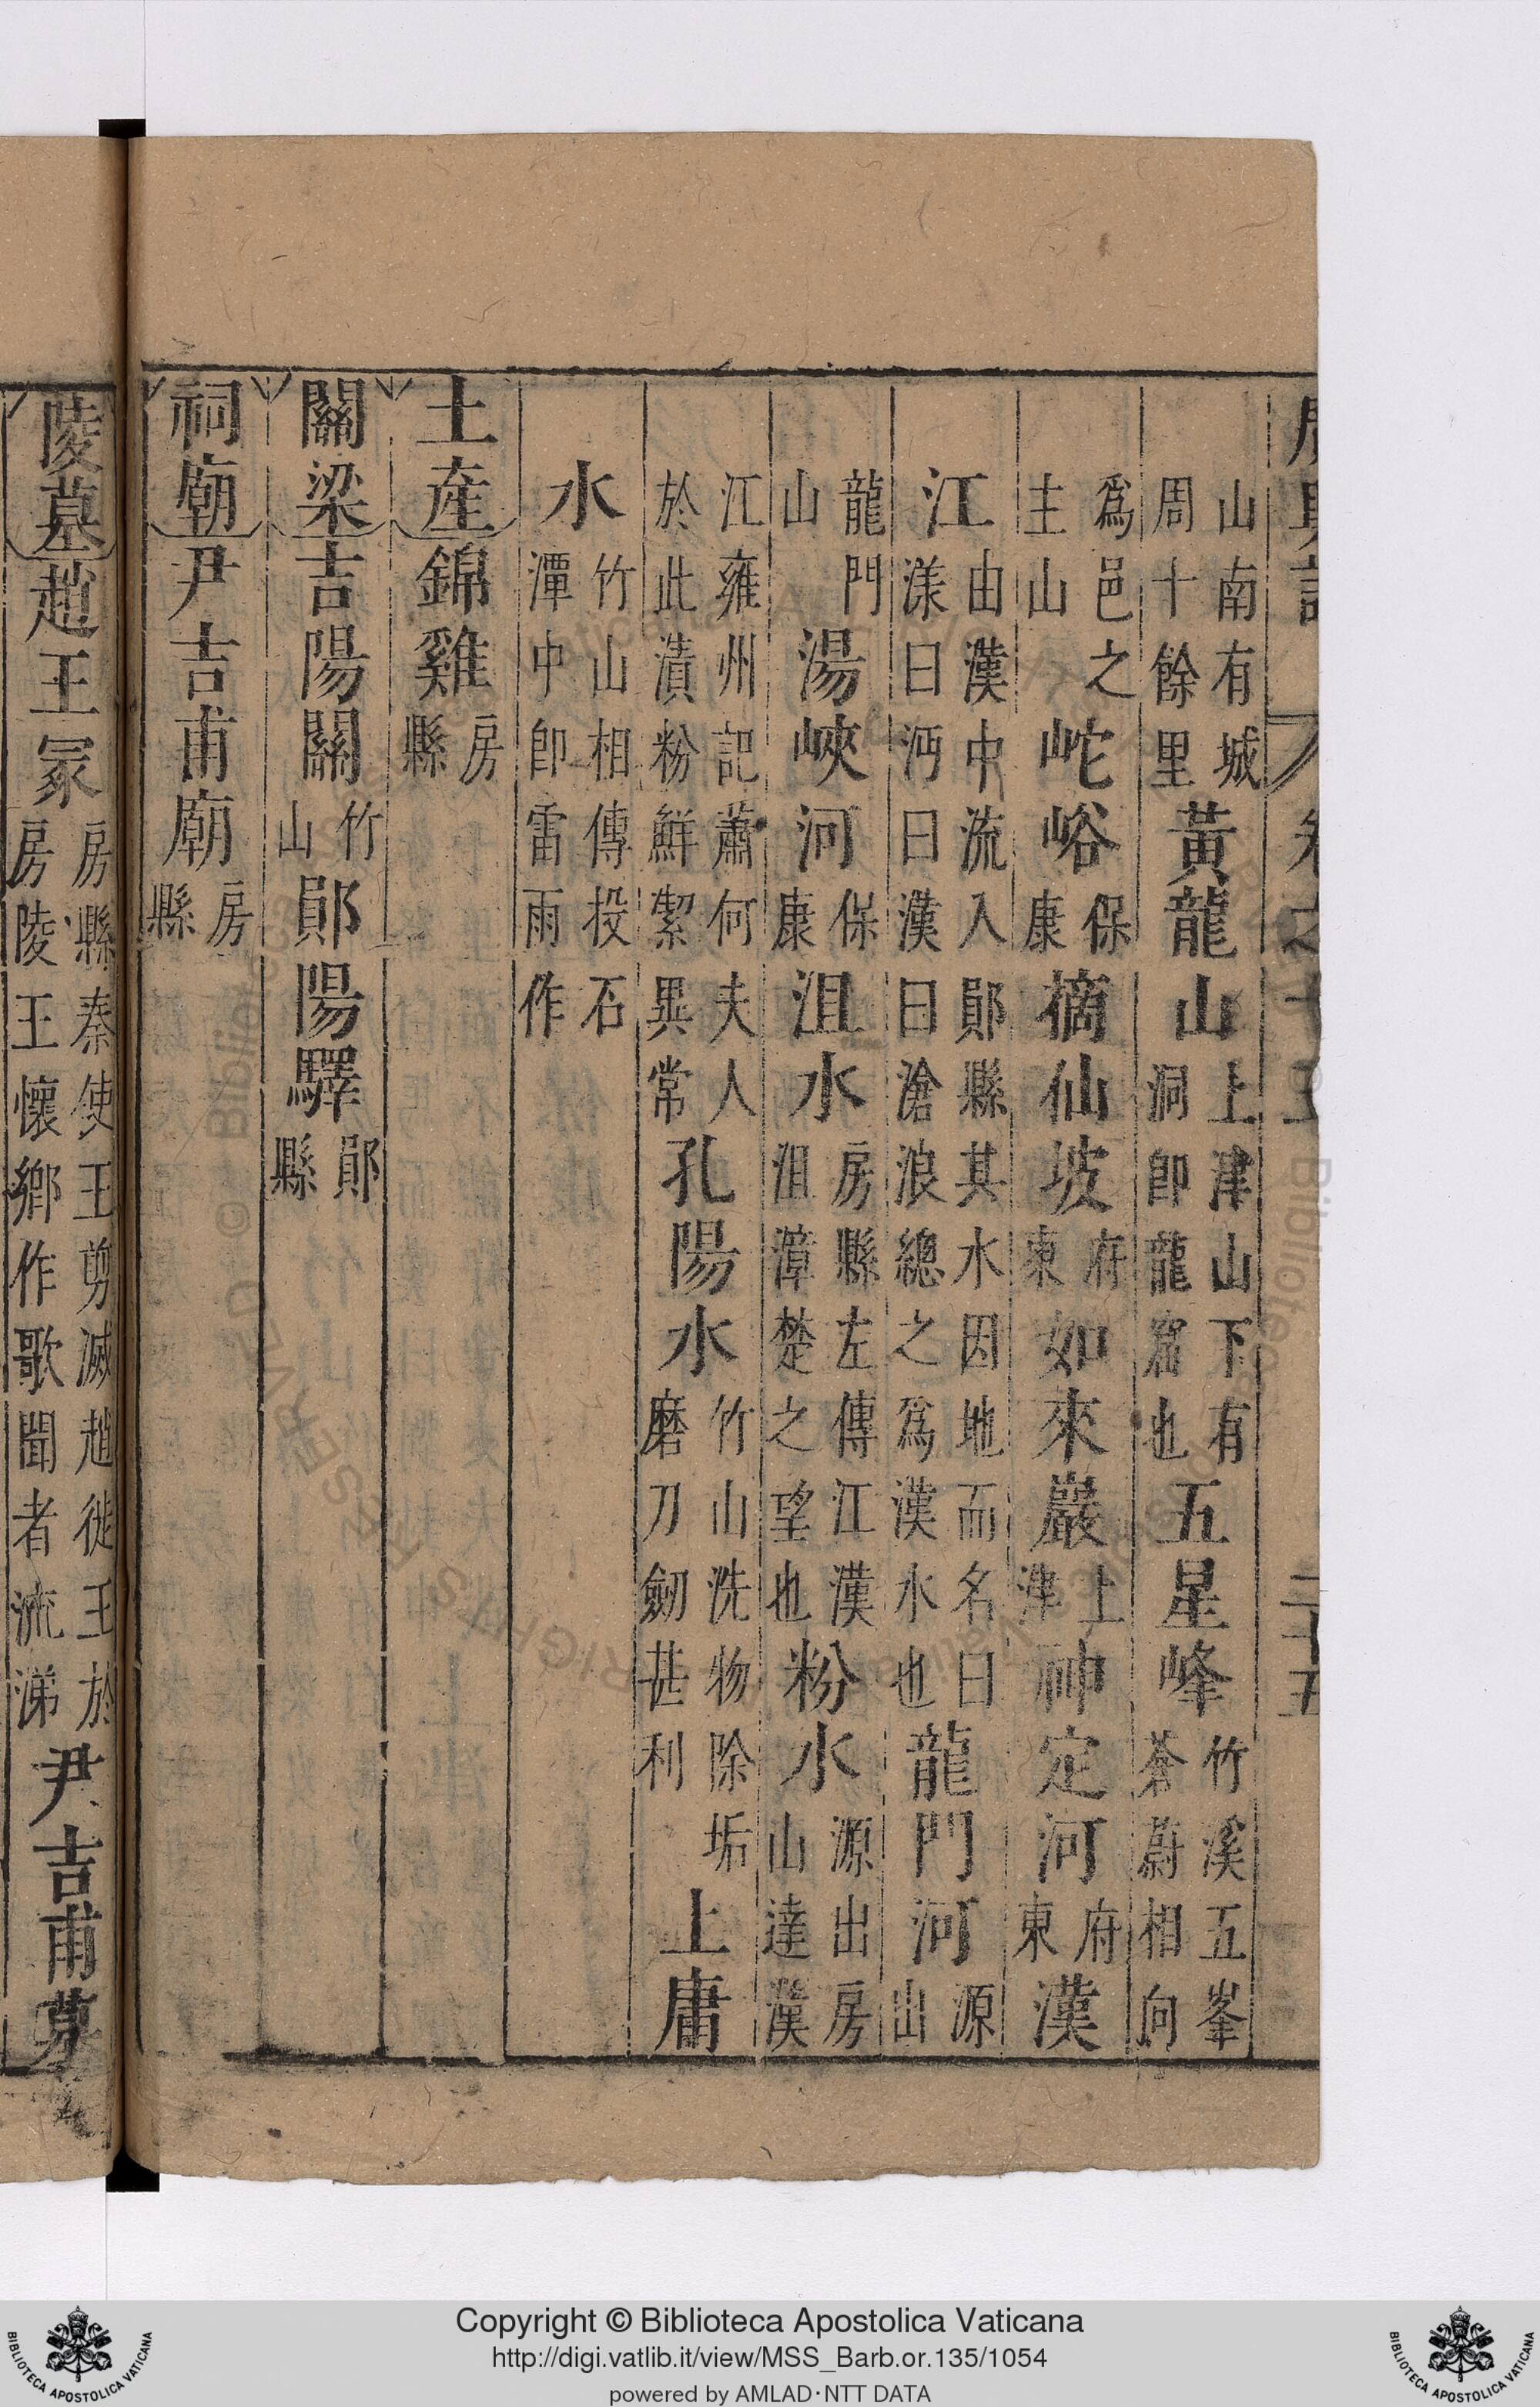 卷之十五 二十五
山南有城周十餘里黃龍山上津山下有洞即龍窟也五星峰竹溪五峯蒼蔚相向
爲邑之主山岮峪保康摘仙坡府東如來巖上津神定河府東漢
江由漢中流入鄖縣其水因地而名曰漾曰沔曰漢曰滄浪總之爲漢水也龍門河源出
龍門山湯峽河保康沮水房縣左傳江漢沮漳楚之望也粉水源出房山達漢
江雍州記蕭何夫人於此漬粉鮮絜異常孔陽水竹山洗物除垢磨刀劒甚利上庸
水竹山相傳投石潭中即雷雨作
土産錦雞房縣
關梁吉陽關竹山鄖陽驛鄖縣
祠廟尹吉甫廟房縣
陵墓趙王冡房縣秦使王剪滅趙徙王於房陵王懷鄉作歌聞者流涕尹吉甫墓
Copyright © Biblioteca Apostolica Vaticana
http://digi.vatlib.it/view/MSS_Barb.or.135/1054
powered by AMLAD·NTT DATA
BIBLIOTECA APOSTOLICA VATICANA
BIBLIOTECA APOSTOLICA VATICANA